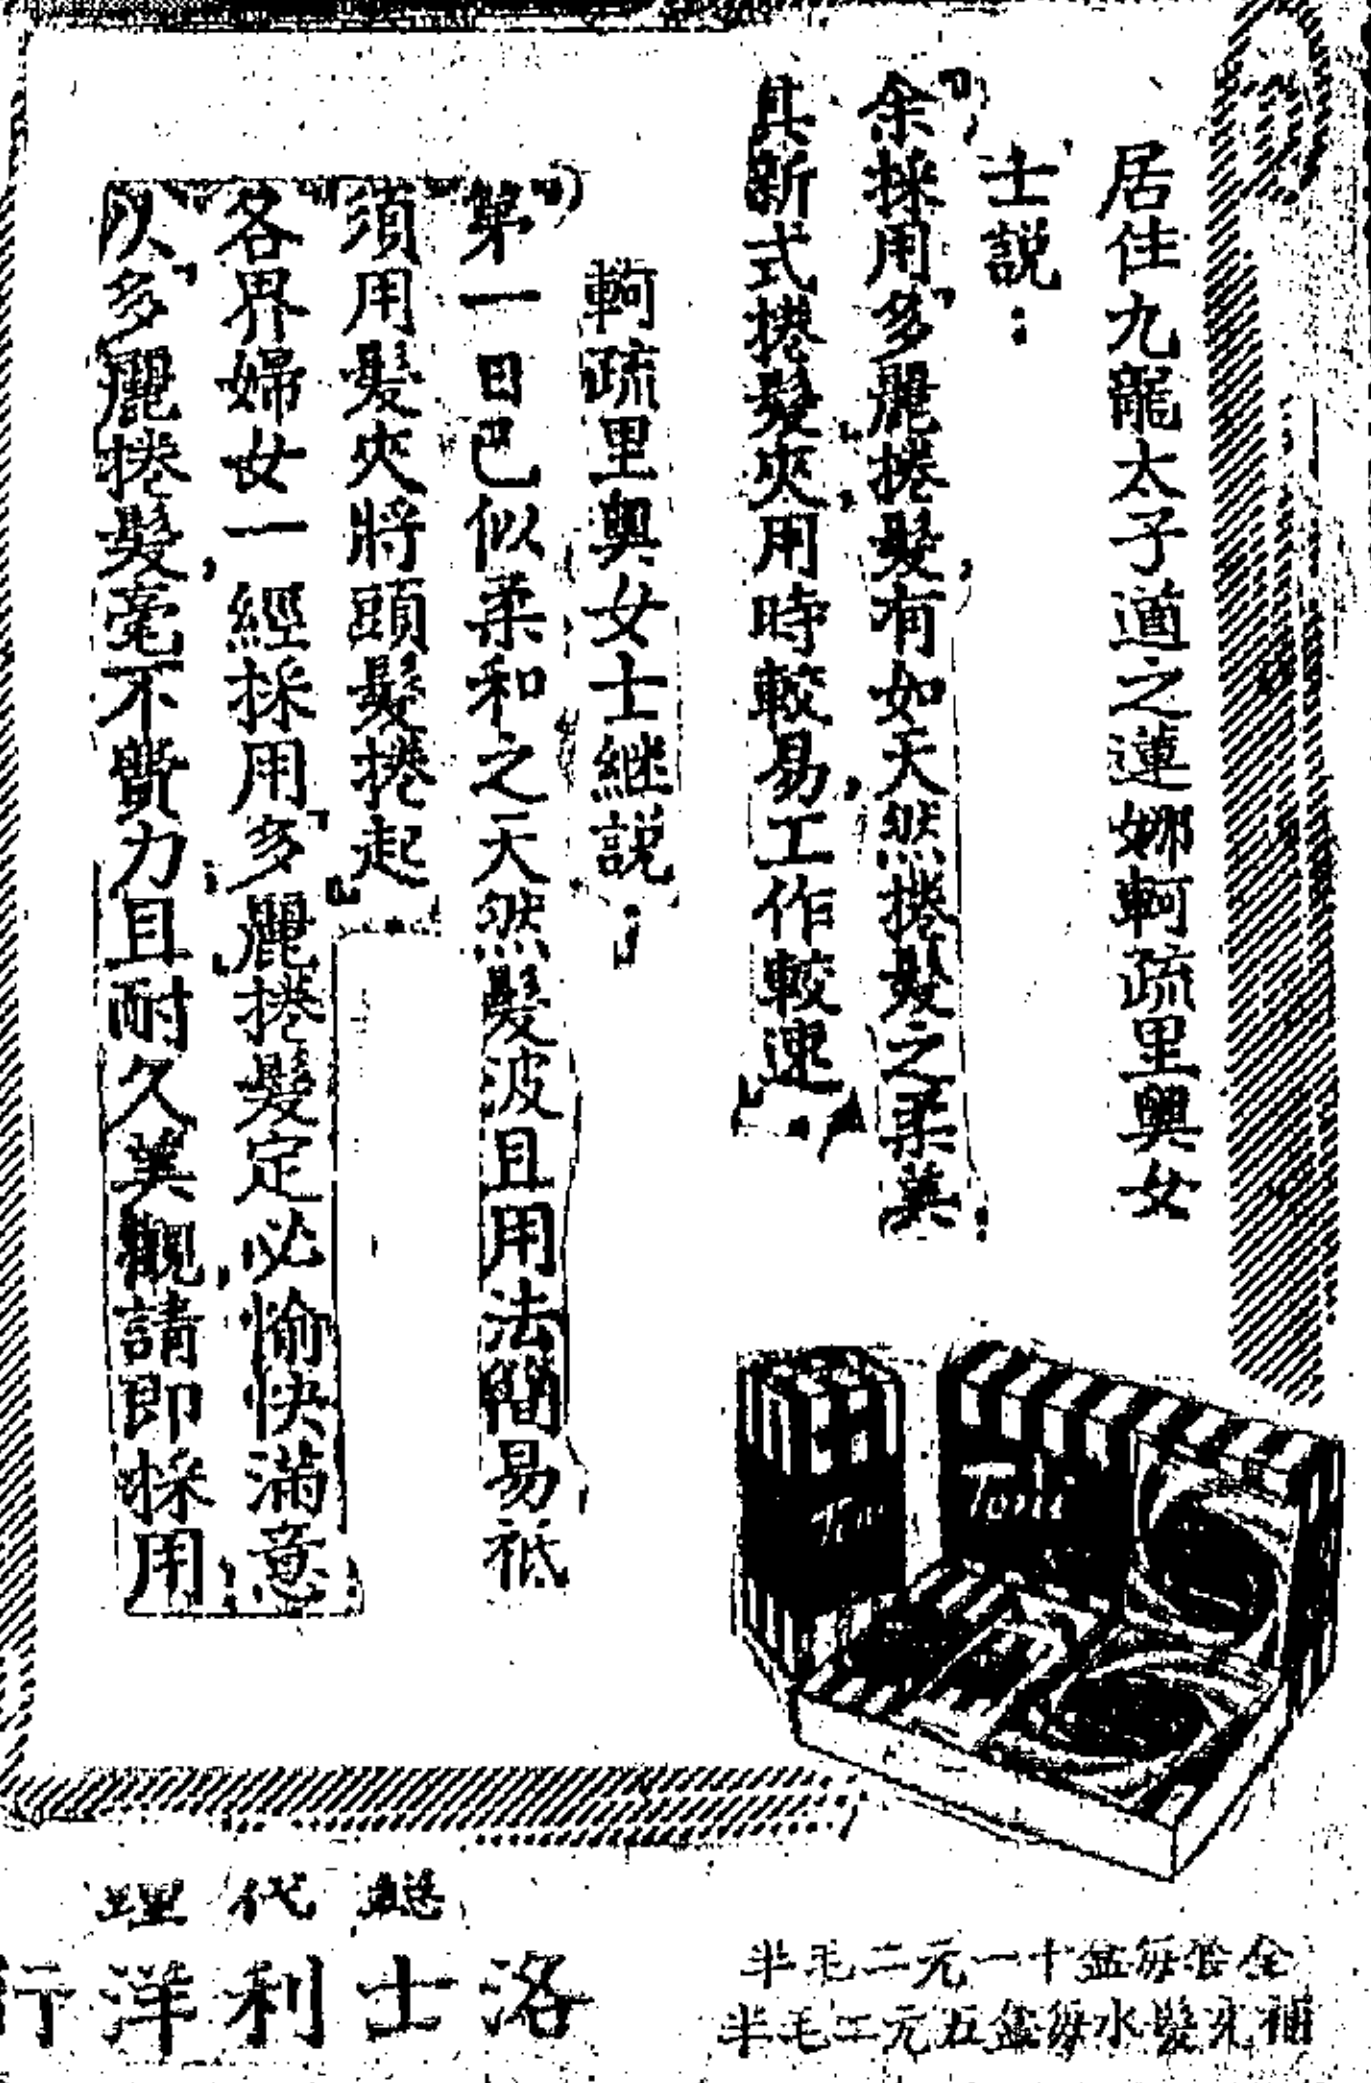 居住九龍太子道之蓮娜軻疏里奧女
士説：
「余採用「多麗」捲髮，有如天然捲髮之柔美，
其新式捲髮夾，用時較易，工作較速」
軻疏里奧女士継説：
「第一日已似柔和之天然髮波且用法簡易祗
須用髮夾將頭髮捲起」
各界婦女一經採用「多麗」捲髮定必愉快滿意，
以「多麗」捲髮，毫不費力，且耐久美觀，請即採用。
Toni
Toni
全套每盒十一元二毛半
補充髮水每盒五元二毛半
總代理
洛士利洋行